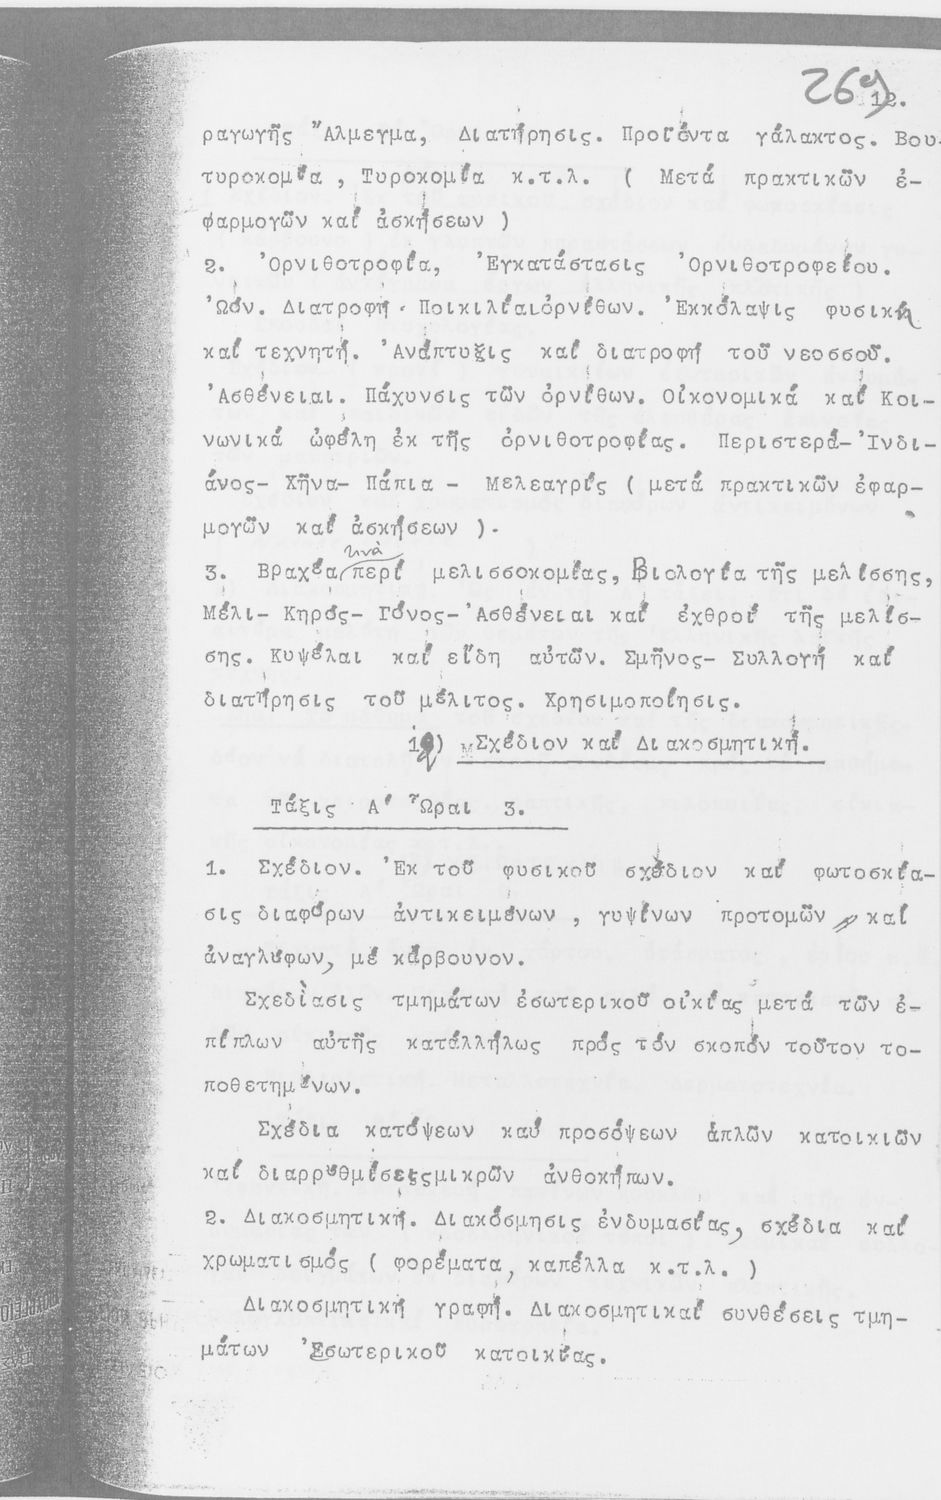 269
12.
ραγωγῆς Ἄλμεγμα, Διατήρησις. Προϊόντα γάλακτος. Βου-
τυροκομία , Τυροκομία κ.τ.λ. ( Μετά πρακτικῶν ἐ-
φαρμογῶν καί ἀσκήσεων )
2. Ὀρνιθοτροφία, Ἐγκατάστασις Ὀρνιθοτροφείου.
Ὠόν. Διατροφή - Ποικιλίαι ὀρνίθων. Ἐκκόλαψις φυσική
καί τεχνητή. Ἀνάπτυξις καί διατροφή τοῦ νεοσσοῦ.
Ἀσθένειαι. Πάχυνσις τῶν ὀρνίθων. Οἰκονομικά καί Κοι-
νωνικά ὠφέλη ἐκ τῆς ὀρνιθοτροφίας. Περιστερά- Ἰνδι-
άνος- Χῆνα- Πάπια - Μελεαγρίς ( μετά πρακτικῶν ἐφαρ-
μογῶν καί ἀσκήσεων ).
3. Βραχέα τινὰ περί μελισσοκομίας, Βιολογία τῆς μελίσσης,
Μέλι- Κηρός- Γόνος- Ἀσθένειαι καί ἐχθροί τῆς μελίσ-
σης. Κυψέλαι καί εἴδη αὐτῶν. Σμῆνος- Συλλογή καί
διατήρησις τοῦ μέλιτος. Χρησιμοποίησις.
Σχέδιον καί Διακοσμητική.
Τάξις Α' Ὧραι 3.
1. Σχέδιον. Ἐκ τοῦ φυσικοῦ σχέδιον καί φωτοσκία-
σις διαφόρων ἀντικειμένων , γυψίνων προτομῶν καί
ἀναγλύφων, μέ κάρβουνον.
Σχεδίασις τμημάτων ἐσωτερικοῦ οἰκίας μετά τῶν ἐ-
πίπλων αὐτῆς κατάλλήλως πρός τόν σκοπόν τοῦτον το-
ποθετημένων.
Σχέδια κατόψεων καί προσόψεων ἁπλῶν κατοικιῶν
καί διαρρυθμίσεις μικρῶν ἀνθοκήπων.
2. Διακοσμητική. Διακόσμησις ἐνδυμασίας, σχέδια καί
χρωματισμός ( φορέματα, καπέλλα κ.τ.λ. )
Διακοσμητική γραφή. Διακοσμητικαί συνθέσεις τμη-
μάτων Ἐσωτερικοῦ κατοικίας.